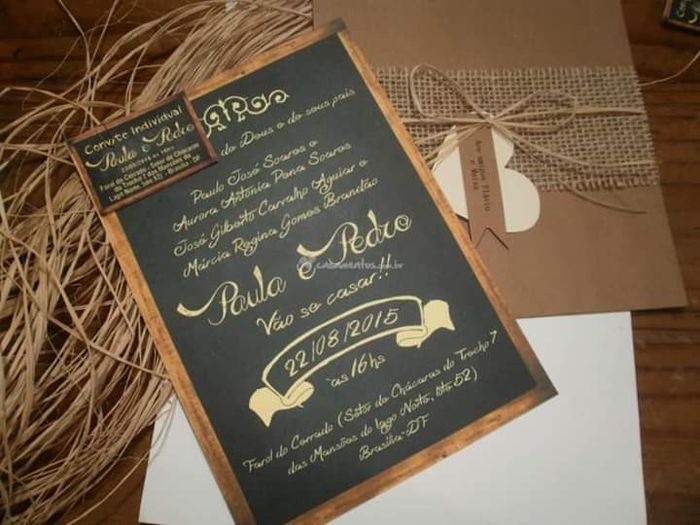 Convite Individual
Paula e Pedro
22/08/2015 às 16hs
Farol do Cerrado, Setor de Chácaras
do Trecho 7 das Mansões do
Lago Norte, lote 52) - Brasília - DF
de Deus e de seus pais
Paulo José Soares e
Aurora Antonia Pena Soares
José Gilberto Carvalho Aguiar e
Márcia Regina Gomes Brandão
Paula e Pedro
casamentos.com.br
Vão se casar!!
22/08/2015
às 16hs
Farol do Cerrado (Setor de Chácaras do Trecho 7
das Mansões do Lago Norte, lote 52)
Brasília-DF
Aos amigos Flávio
e Maísa